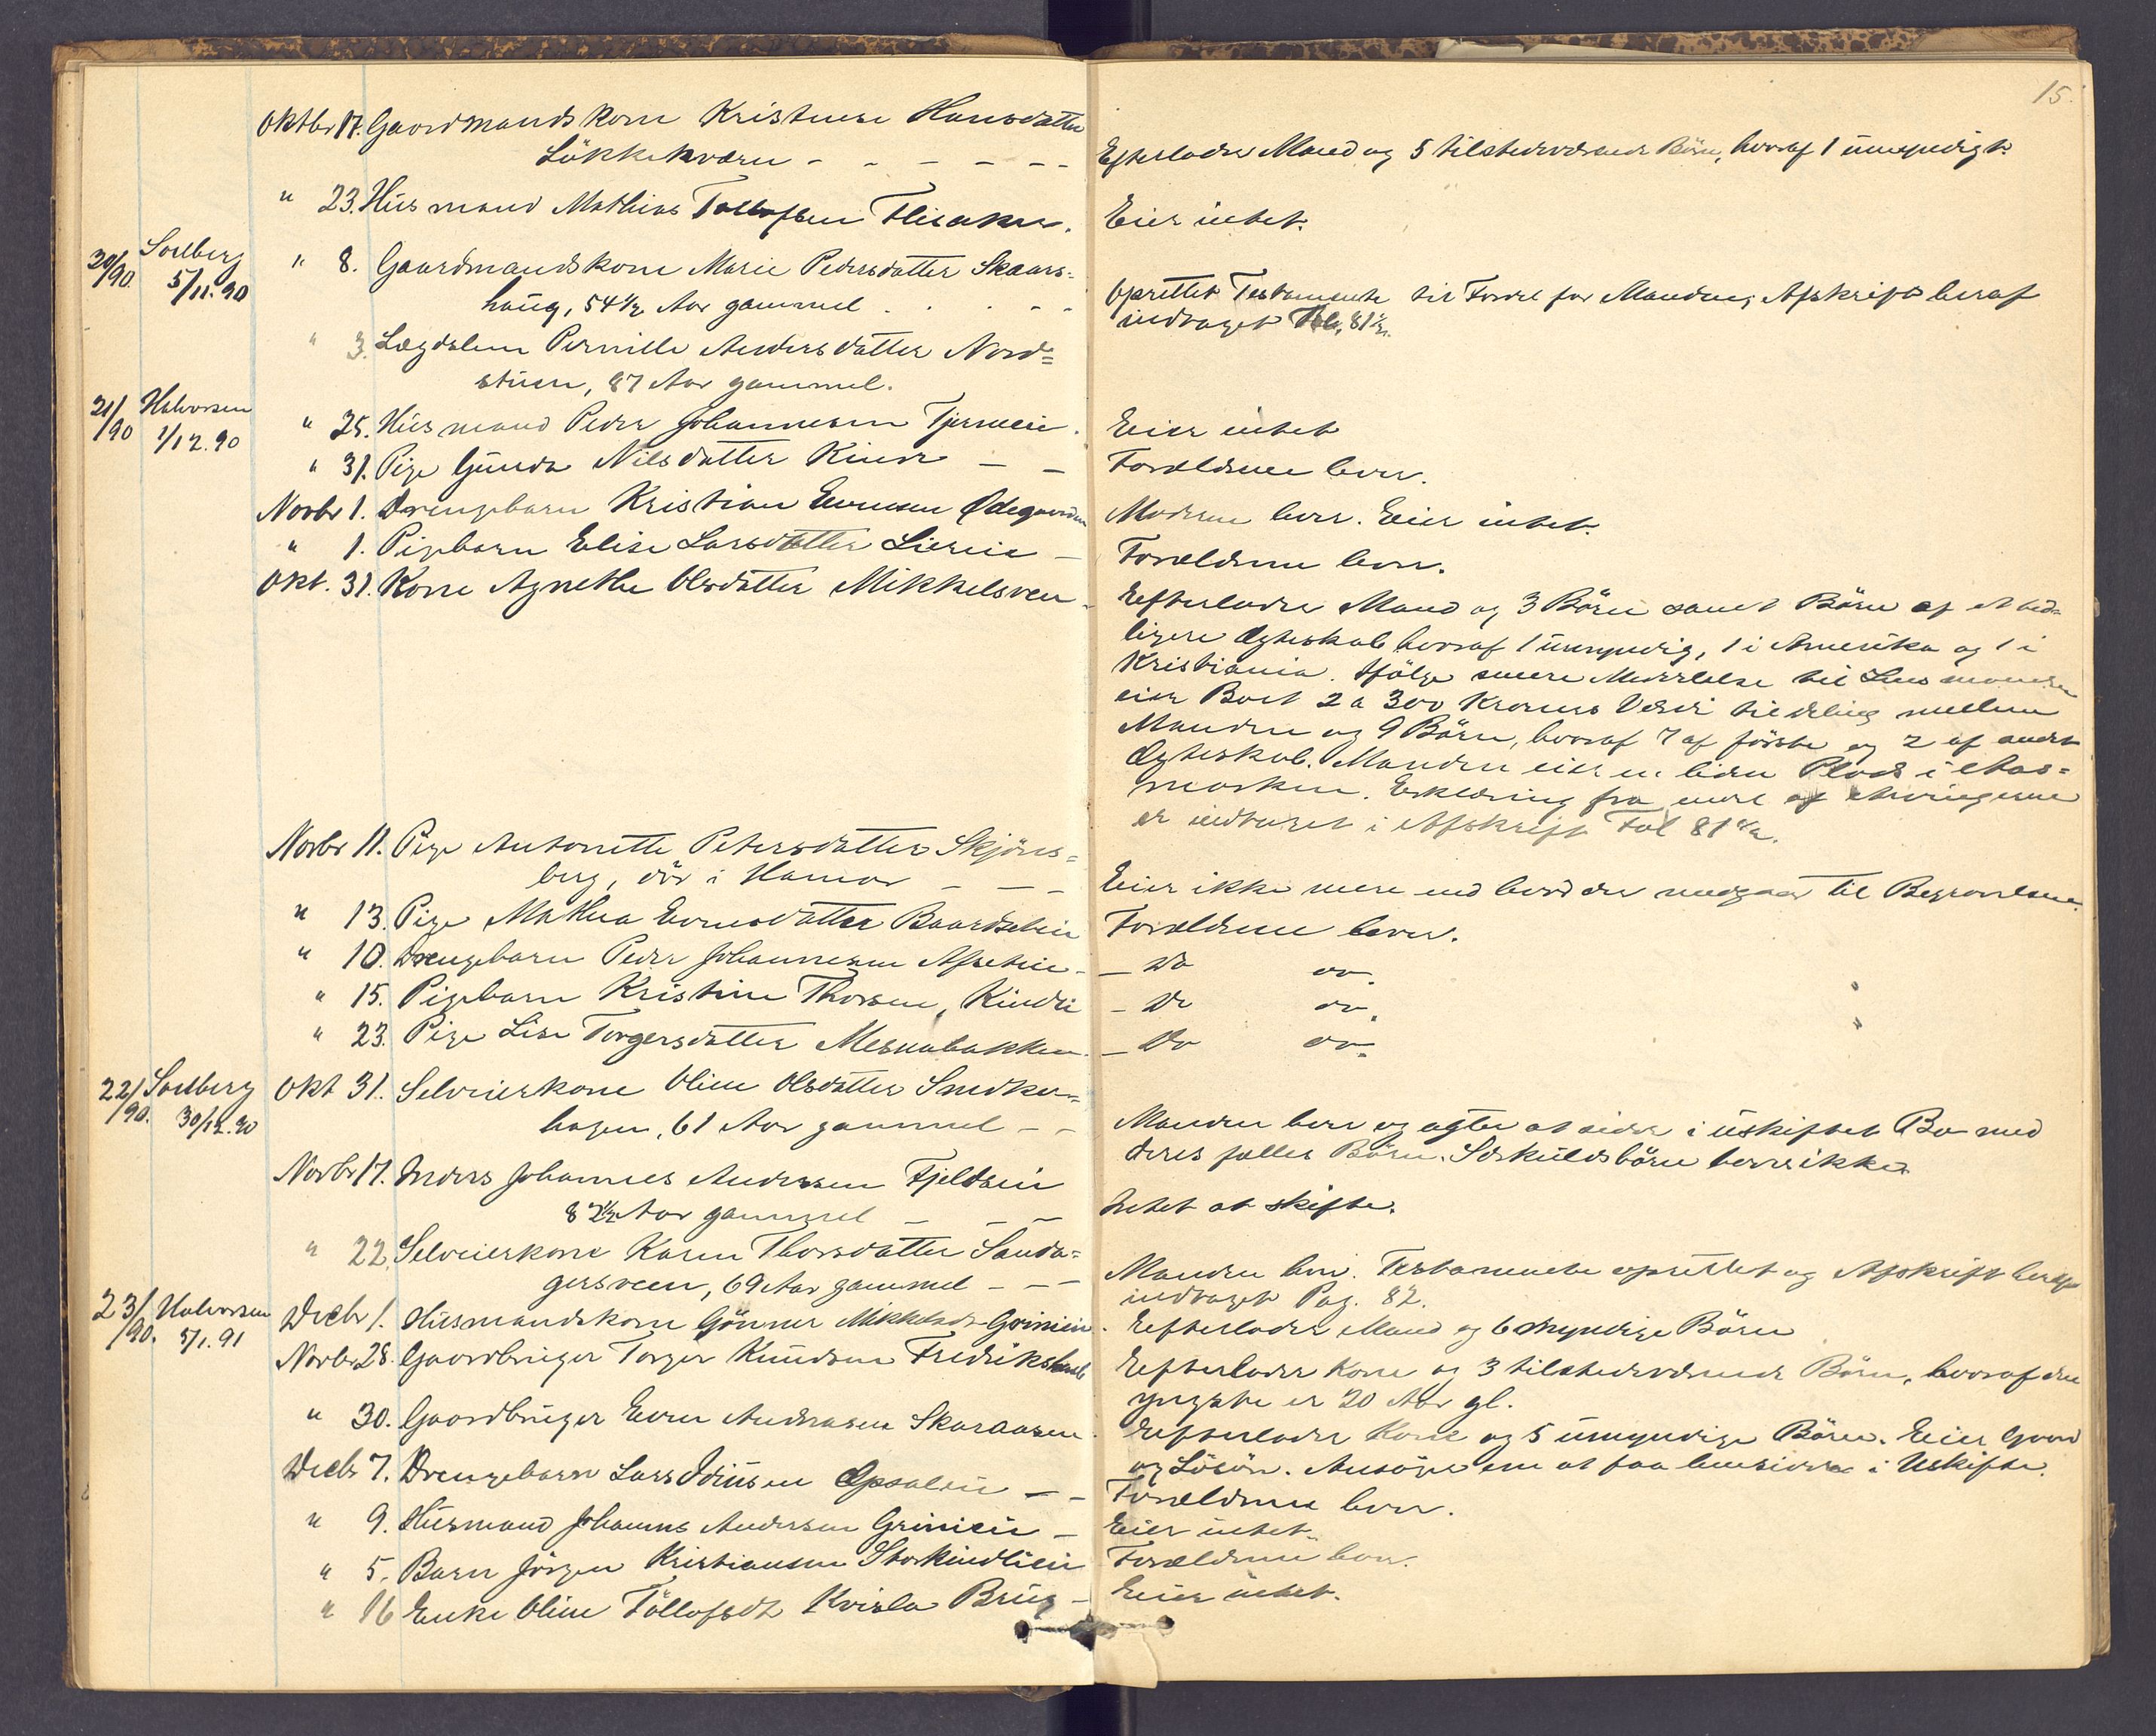 15.
Oktbr 17. Gaardmandskone Kristense Hansdatter
Lökkekværn - - - - - - Efterlader Mand og 5 tilstedeværende Börn, hvoraf 1 umyndigt.
" 23. Husmand Mathias Tollefsen Flisaker. Eier intet.
20/90. Soelberg 5/11.90 " 8. Gaardmandskone Marie Pedersdatter Skaars=
haug, 54 1/2 Aar gammel . . . - - Oprettet Testamente til Fordel for Manden; Afskrift heraf
indtaget Fol. 81 1/2.
" 3. Lægdslem Pernille Andersdatter Nord=
stuen, 87 Aar gammel.
21/90 Halvorsen 1/12.90 " 25. Husmand Peder Johannesen Tjerneie. Eier intet
" 31. Pige Gunda Nilsdatter Kinde - - Forældrene lever.
Novbr 1. Drengebarn Kristian Evensen Ødegaarden Moderen lever. Eier intet.
" 1. Pigebarn Elise Larsdatter Liereie - Forældrene lever.
Okt. 31. Kone Agnethe Olsdatter Mikkelsveen - Efterlader Mand og 3 Börn samt Börn af et tid=
ligere Ægteskab hvoraf 1 umyndig, 1 i Amerika og 1 i
Kristiania. Ifölge senere Meddelelse til Lensmanden
eier Boet 2 a 300 Kroners Værdi til deling mellem
Manden og 9 Börn, hvoraf 7 af förste og 2 af andet
Ægteskab. Manden eier en liden Plads i Aas=
marken. Erklæring fra endel af Arvingerne
er indtaget i Afskrift Fol 81 1/2.
Novbr 11. Pige Antonette Petersdatter Skjöns=
berg, död i Hamar - - - Eier ikke mere end hvad der medgaar til Begravelsen.
" 13. Pige Mathea Evensdatter Baardseteie Forældrene lever.
" 10. Drengebarn Peder Johannesen Afseteie - - do do.
" 15. Pigebarn Kristine Thorsen, Kindli - do do.
" 23. Pige Lise Torgersdatter Mesnabakken. - do do.
22/90. Soelberg 30/12.90 Okt 31. Selveierkone Oline Olsdatter Snedker=
hagen, 61 Aar gammel - - Manden lever og agter at sidde i uskiftet Bo med
deres fælles Börn. Særkuldsbörn haves ikke.
Novbr 17. Inders Johannes Andersen Fjeldseie
82 1/2 Aar gammel - - - Intet at skifte.
" 22. Selveierkone Karen Thorsdatter Sanda=
gersveen, 69 Aar gammel - - - Manden lever. Testamente oprettet og Afskrift heraf
indtaget Pag. 82.
23/90. Halvorsen 5/1.91 Decbr 1. Husmandskone Gönner Mikkelsdt Grinieie. Efterlader Mand og 6 Myndige Börn
Novbr 28. Gaardbruger Torger Knudsen Fredriks Efterlader Kone og 3 tilstedeværende Börn, hvoraf den
yngste er 20 Aar gl.
" 30. Gaardbruger Even Andreasen Skaraasen. Efterlader Kone og 5 umyndige Börn. Eier Gaard
og Lösöre. Ansöges om at faa hensidde i Uskifte.
Decbr 7. Drengebarn Lars Idiusen Opsaleie - - Forældrene lever.
" 9. Husmand Johannes Andersen Grinieie - Eier intet.
" 5. Barn Jörgen Kristiansen Storkindlieie Forældrene lever.
" 16 Enke Oline Töllofsdt Kvisla Brug - Eier intet.